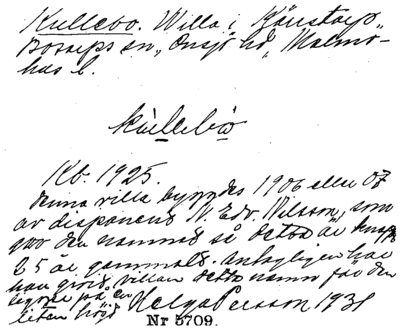 Kullebo. Villa i Känstorp,
Bosarps sn, Onsjö hd, Malmö-
hus l.
kùllebò
Kb. 1925.
Denna villa byggdes 1906 eller 07
av disponent N. Edv. Nilsson, som
gav den namnet så detta är knappt
25 år gammalt. Antagligen har
han givit villan detta namn för den
ligger på en
liten höjd. Helga Persson 1931
Nr 5709.